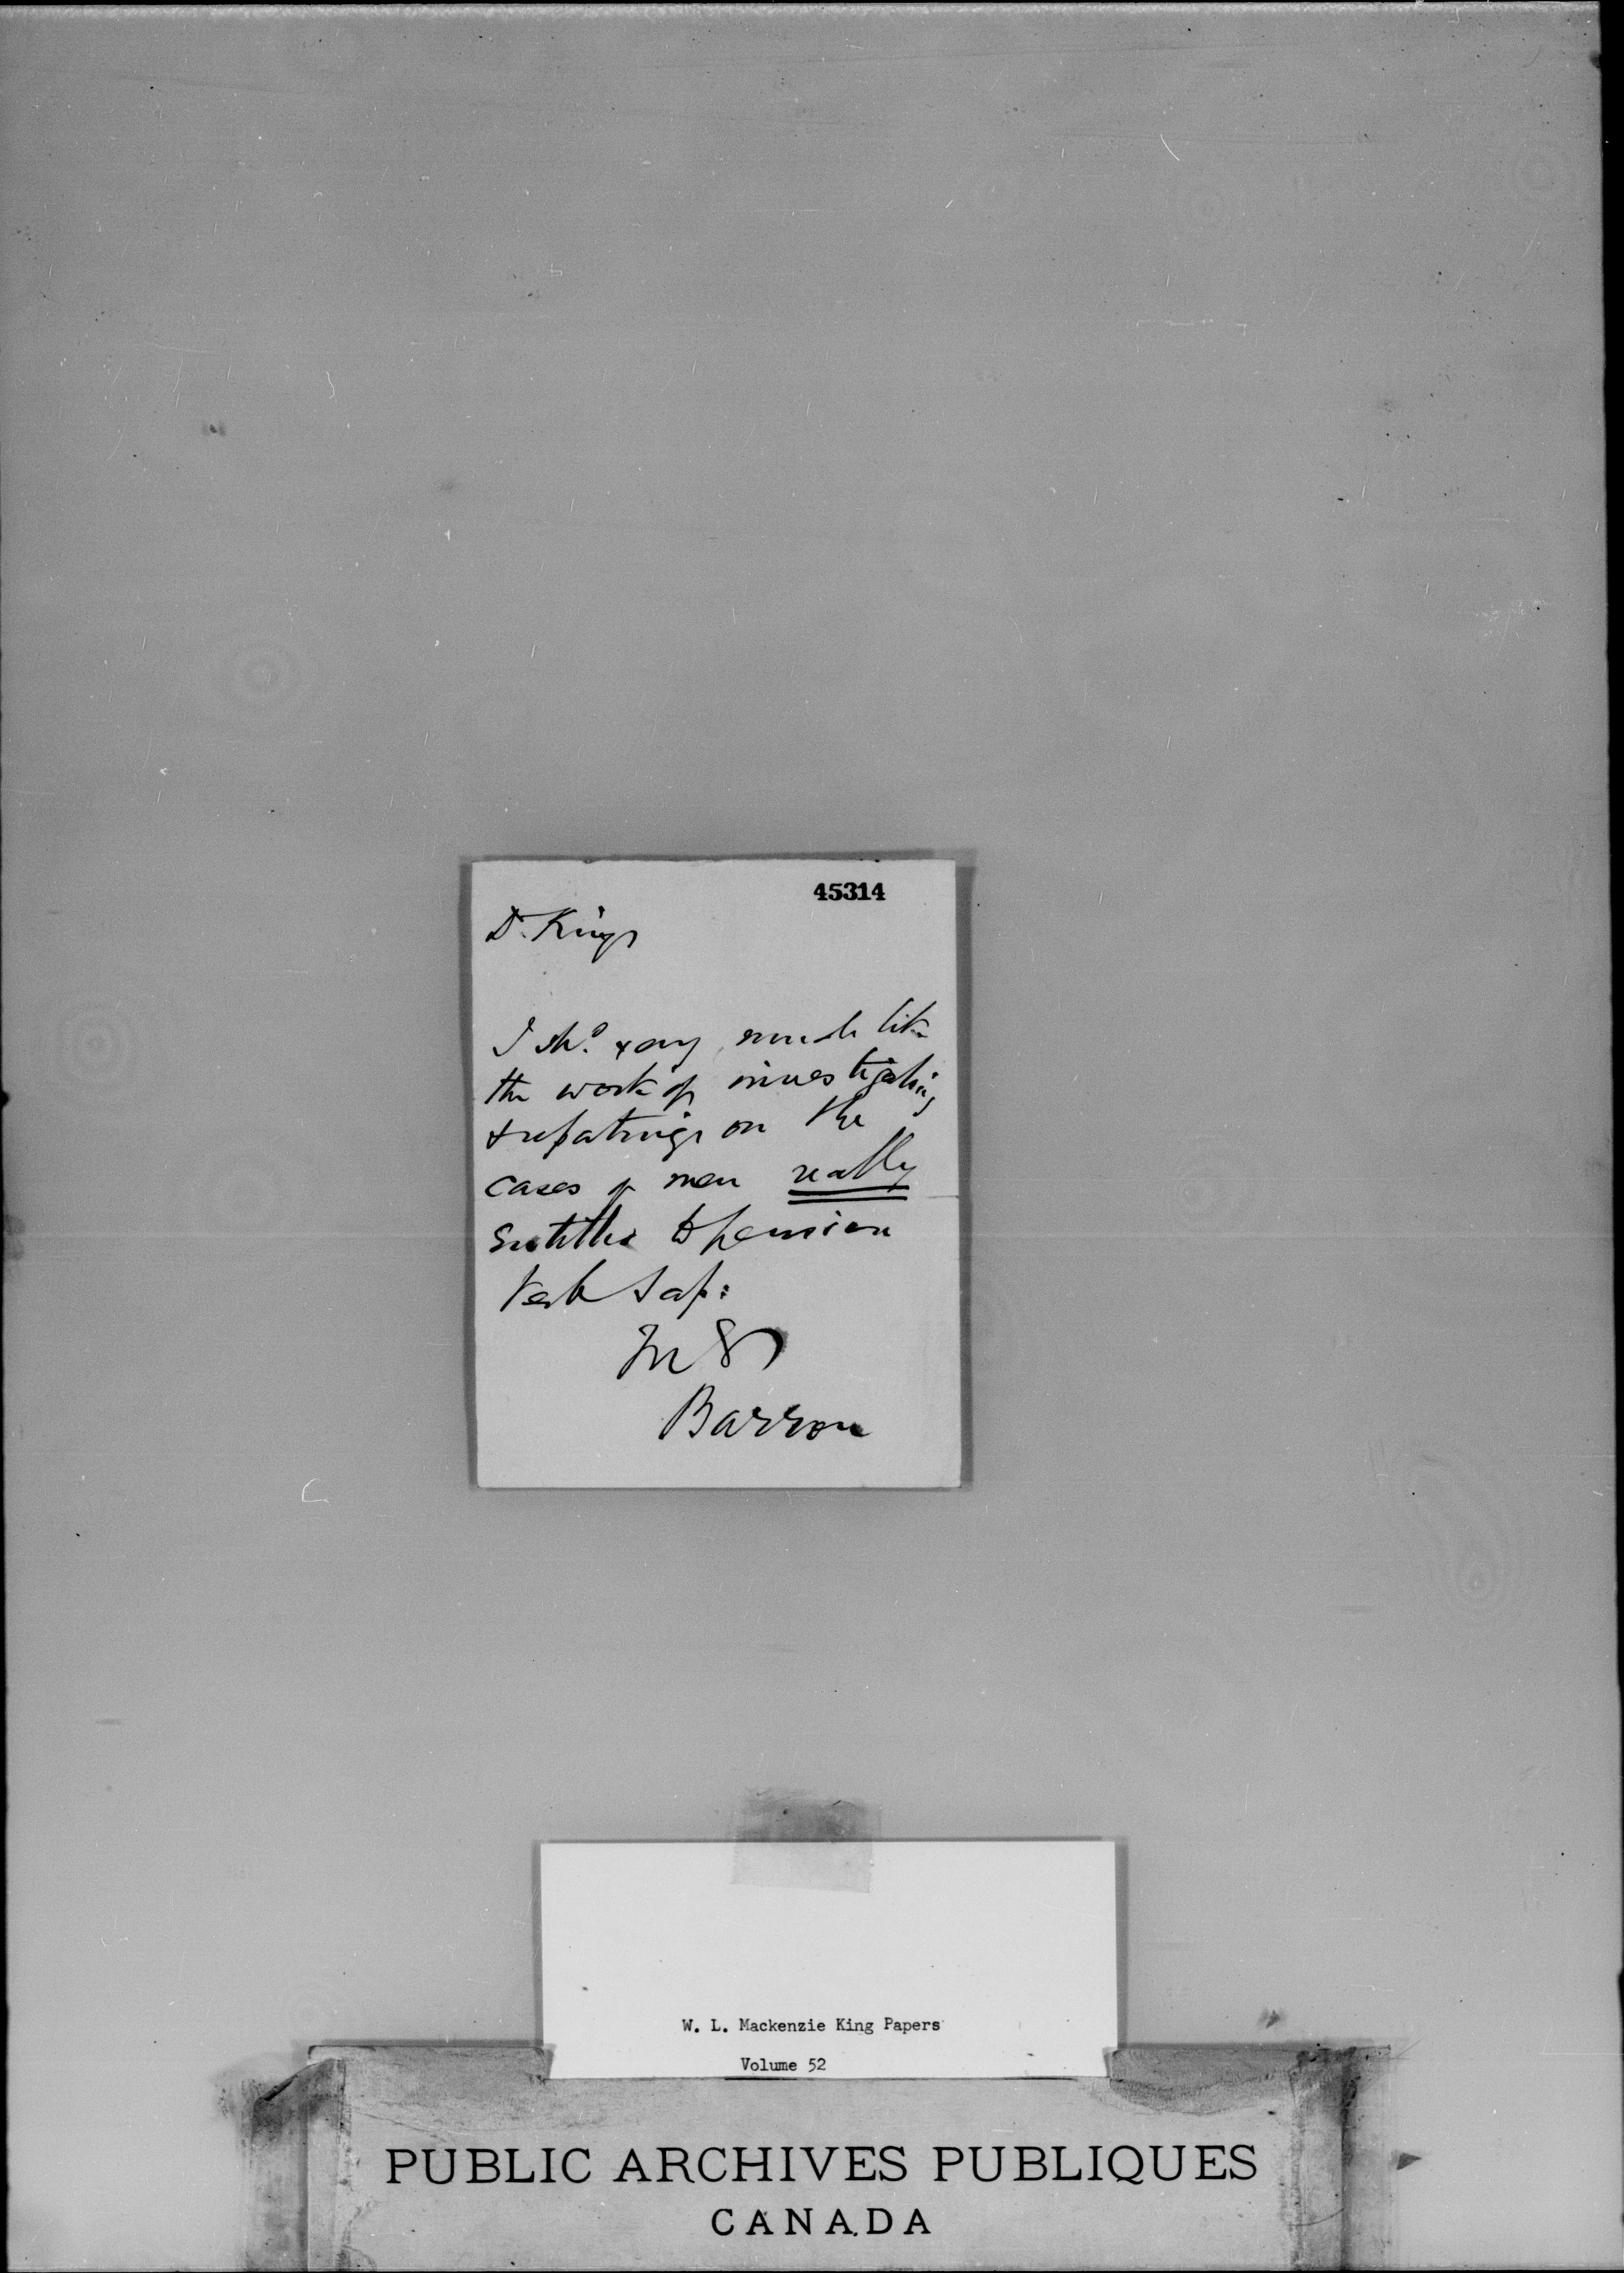 45314
Dr. King
I shd. very much like
the work of investigating
& reporting on the
cases of men really
entitled to pension
Verb Sap:
Barron
W. L. Mackenzie King Papers
Volume 52
PUBLIC ARCHIVES PUBLIQUES
CANADA